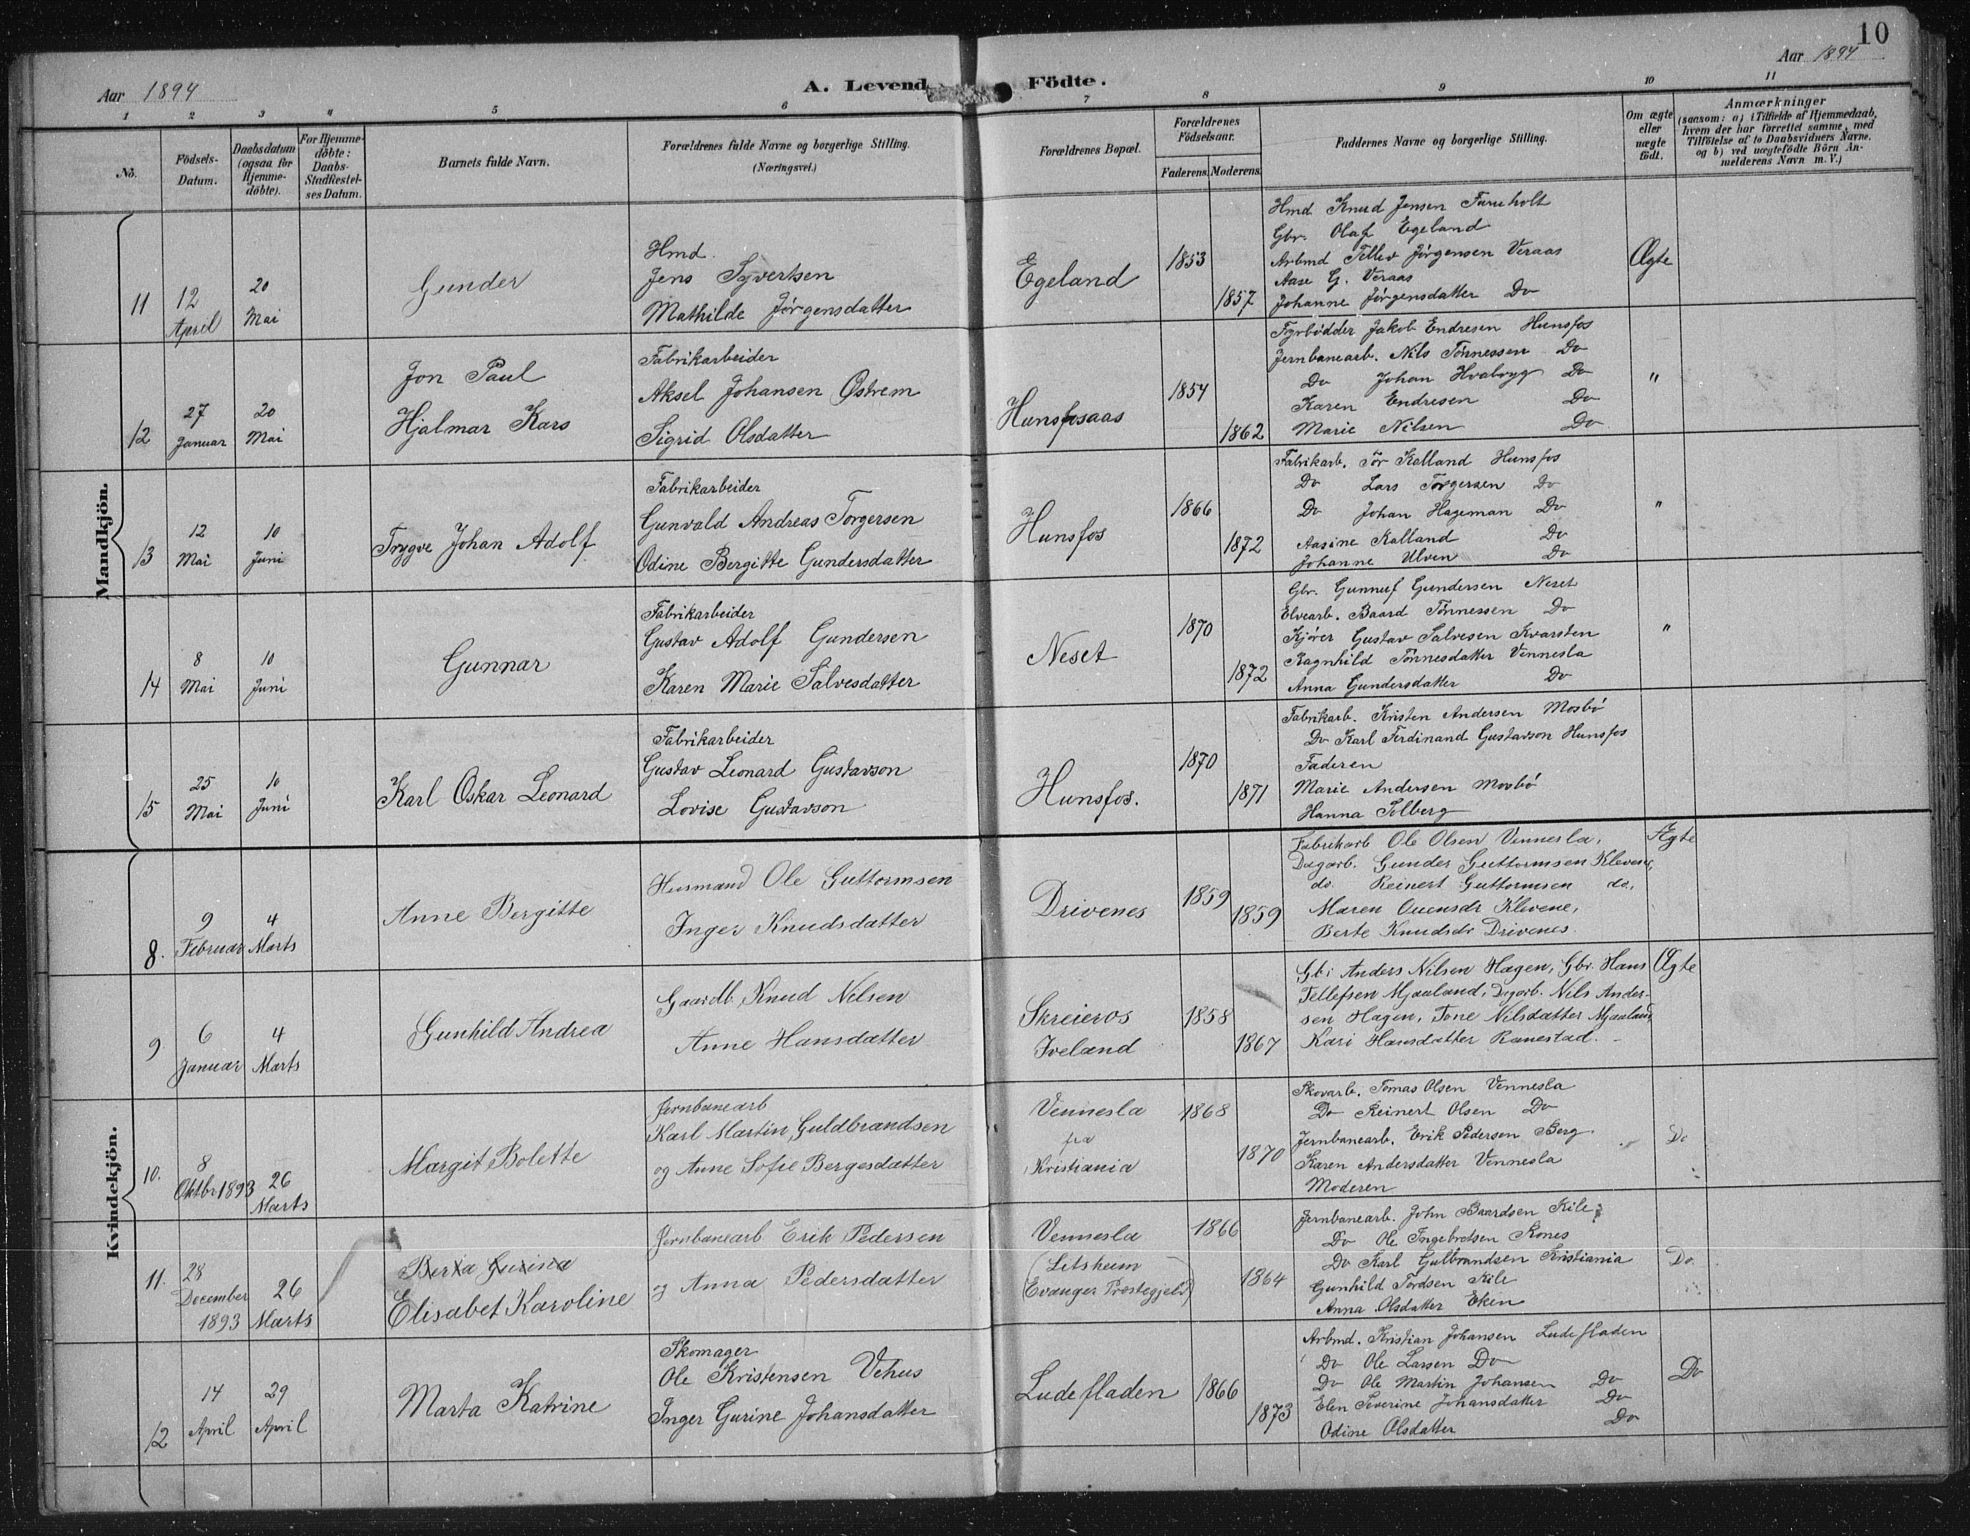 10
Aar 1894
A. Levend Födte.
Aar 1894
1 2 3 4 5 6 7 8 9 10 11
No.
Födsels-
Datum.
Daabsdatum
(ogsaa for
Hjemme-
döbte).
For Hjemme-
döbte:
Daabs-
Stadfæstel-
ses Datum.
Barnets fulde Navn.
Forældrenes fulde Navne og borgerlige Stilling.
(Næringsvei.)
Forældrenes Bopæl.
Forældrenes
Födselsaar.
Faderens. Moderens.
Faddernes Navne og borgerlige Stilling.
Om ægte
eller
uægte
födt.
Anmærkninger
(saasom: a) i Tilfælde af Hjemmedaab,
hvem der har forrettet samme, med
Tilföielse af to Daabsvidners Navne,
og b) ved uægtefödte Börn An-
melderens Navn m. V.)
Mandkjön.
11
12
April
20
Mai
Gunder
Hmd.
Jens Syvertsen
Mathilde Jørgensdatter
Egeland
1853
1857
Hmd Knud Jensen Furuholt
Gbr. Olaf Egeland
Arbmd Tellev Jørgensen Veraas
Aase G. Veraas
Johanne Jørgensdatter Do
Ægte
12
27
Januar
20
Mai
Jon Paul
Hjalmar Kars
Fabrikarbeider
Aksel Johansen Østrem
Sigrid Olsdatter
Hunsfosaas
1854
1862
Fyrbødder Jakob Endresen Hunsfos
Jernbanearb. Nils Tønnessen Do
Do Johan Hvabryg Do
Karen Endresen Do
Marie Nilsen Do
"
13
12
Mai
10
Juni
Trygve Johan Adolf
Fabrikarbeider
Gunvald Andreas Torgersen
Odine Bergitte Gundersdatter
Hunsfos
1866
1872
Fabrikarb. Tør Kalland Hunsfos
Do Lars Torgersen Do
Do Johan Hageman Do
Aasine Kalland Do
Johanne Ulven Do
"
14
8
Mai
10
Juni
Gunnar
Fabrikarbeider
Gustav Adolf Gundersen
Karen Marie Salvesdatter
Neset
1870
1872
Gbr. Gunnuf Gundersen Neset
Elvearb. Baard Tønnessen Do
Kjører Gustav Salvesen Kvarsten
Ragnhild Tønnesdatter Vennesla
Anna Gundersdatter Do
"
15
25
Mai
10
Juni
Karl Oskar Leonard
Fabrikarbeider
Gustav Leonard Gustavson
Lovise Gustavson
Hunsfos.
1870
1871
Fabrikarb. Kristen Andersen Mosbö
Do Karl Ferdinand Gustavson Hunsfos
Faderen
Marie Andersen Mosbö
Hanna Solberg
Kvindekjön.
8.
9
Februar
4
Marts
Anne Bergitte
Husmand Ole Guttormsen
Inger Knudsdatter
Drivenes
1859
1859
Fabrikarb Ole Olsen Vennesla,
Dagarb. Gunder Guttormsen Klevene,
do. Reinert Guttormsen do,
Maren Ouensdr Klevene,
Berte Knudsdr Drivenes.
Ægte
9
6
Januar
4
Marts
Gunhild Andrea
Gaardb. Knud Nilsen
Anne Hansdatter
Skreieros
Iveland
1858
1867
Gbr Anders Nilsen Hagen, Gbr. Hans
Tellefsen Mjaaland, Dagarb. Nils Ander-
sen Hagen, Tone Nilsdatter Mjaaland,
Kari Hansdatter Ranestad.
Ægte
10.
8
Oktbr 1893
26
Marts
Margit Bolette
Jernbanearb
Karl Martin Guldbrandsen
og Anne Sofie Bergesdatter
Vennesla
fra
Kristiania
1868
1870
Skovarb. Tomas Olsen Vennesla
Do Reinert Olsen Do
Jernbanearb. Erik Pedersen Berg
Karen Andersdatter Vennesla
Moderen
Do
11.
28
December
1893
26
Marts
Berta Gurina
Elisabet Karoline
Jernbanearb Erik Pedersen
og Anna Pedersdatter
Vennesla
(Litsheim
Evanger Prestegjeld)
1866
1864
Jernbanearb. John Baardsen Kile
Do Ole Ingebretsen Rones
Do Karl Gulbrandsen Kristiania
Gunhild Tordsen Kile
Anna Olsdatter Ekin
Do
12
14
April
29
April
Marta Katrine
Skomager
Ole Kristensen Vehus
Inger Gurine Johansdatter
Ludefladen
1866
1873
Arbmd. Kristian Johansen Ludefladen
Do Ole Larsen Do
Do Ole Martin Johansen Do
Elen Severine Johansdatter Do
Odine Olsdatter Do
Do